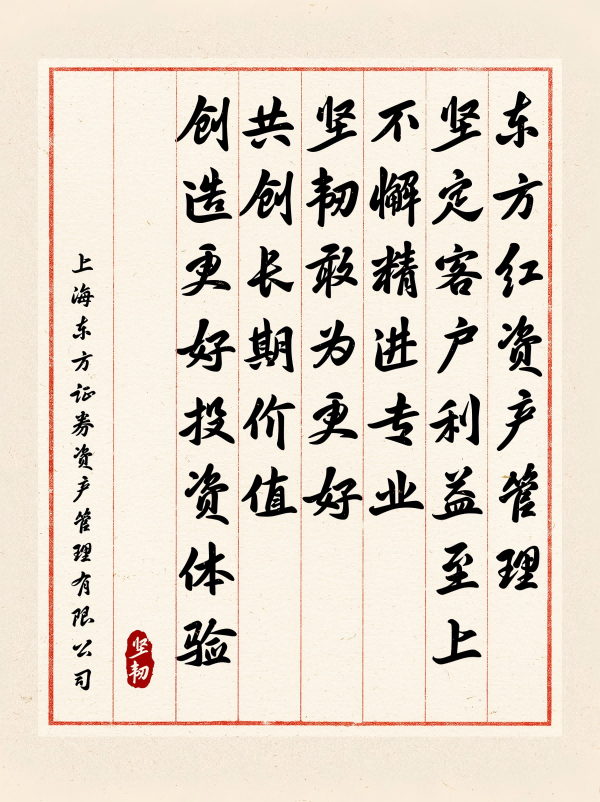 东方红资产管理
坚定客户利益至上
不懈精进专业
坚韧敢为更好
共创长期价值
创造更好投资体验
坚韧
上海东方证券资产管理有限公司